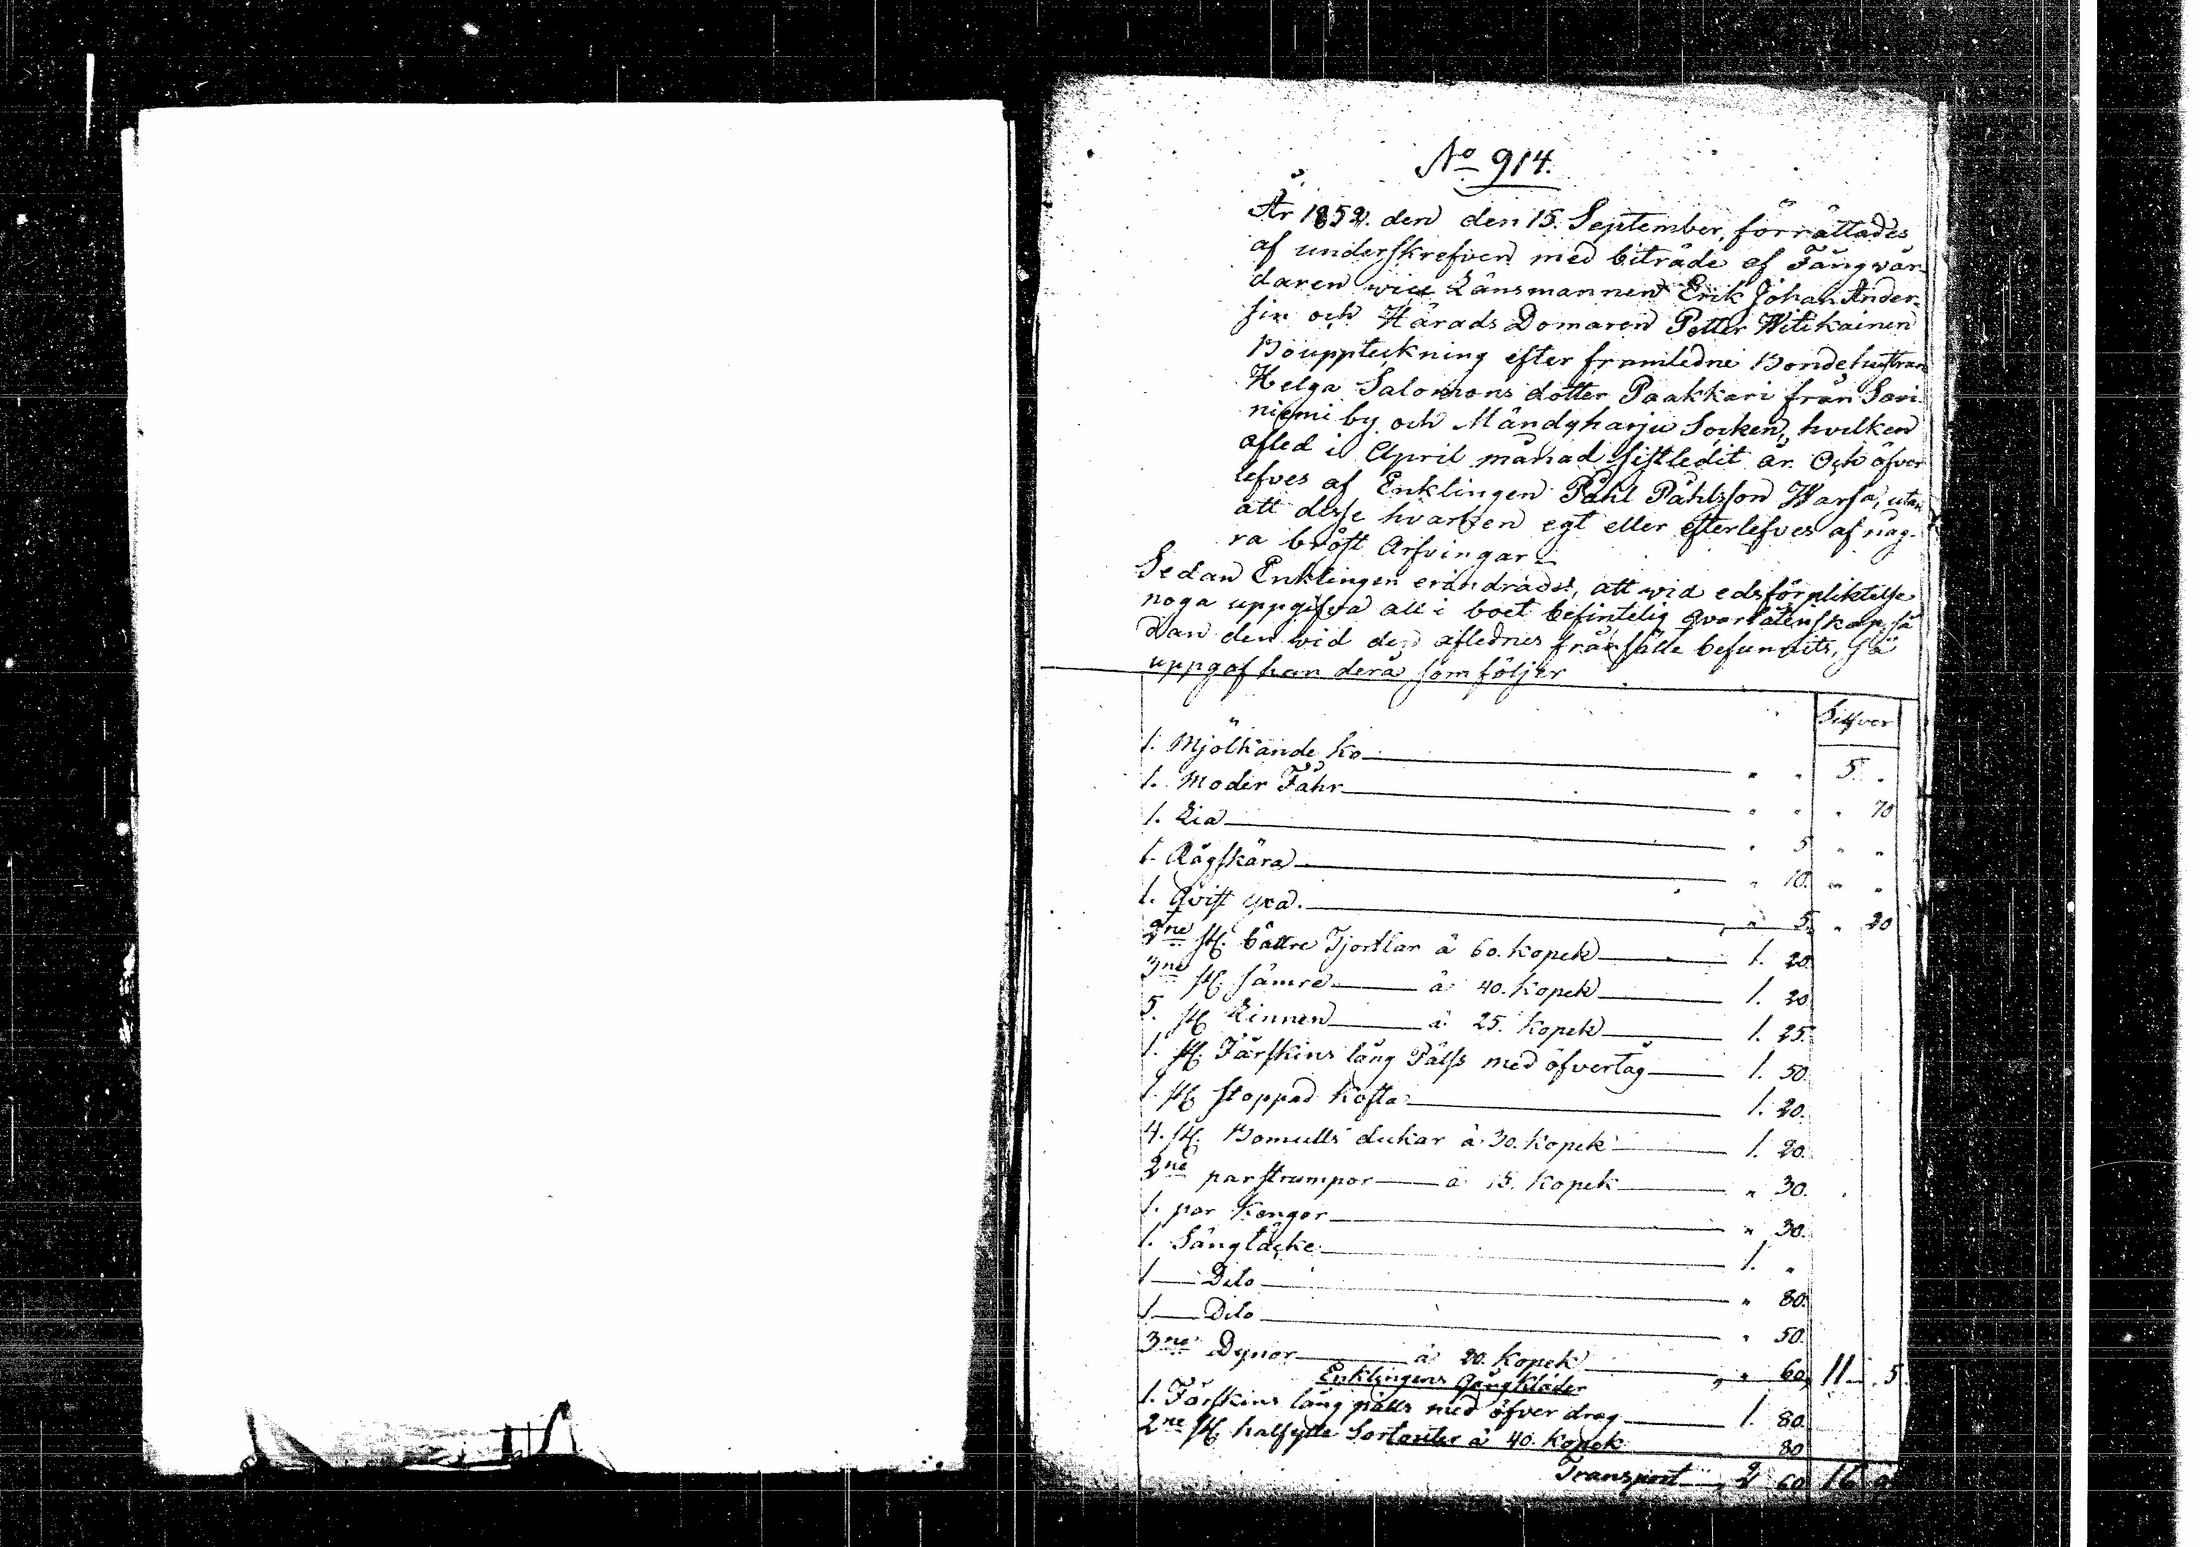 No 914.
År 1852. den den 15. September, förrättades
af underskrefven med biträde af Fångvär-
daren vice Länsmannen Erik Johan Ander-
sin och Härads Domaren Petter Witikainen
Bouppteckning efter framledne Bondehustrun
Helga Salomons dotter Paakkari från Sari-
niemi by och Mändyharju Socken, hvilken
afled i April månad sistledit år. Och öfver
lefves af Enklingen Påhl Påhlsson Warsa, utan
att desse hvarken egt eller efterlefves af någ-
ra bröst Arfvingar
Sedan Enklingen erindrades, att vid edsförpliktelse
noga uppgifva all i boet befintelig qvarlåtenskap, så
dan den vid den aflednes frånfälle befunnits, så
uppgaf han derå som följer
Silfver
1. Mjölkande ko " " 5 "
1. Moder Fåhr " " " 70
1. Lia " 5 " "
1. Rågskära " 10. " "
1. Qvist yxa. " 5. " 20
2ne st. bättre Tjortlar â 60. kopek 1. 20
3ne st. sämre â 40. kopek 1. 20
5. st. Linnen â 25. kopek 1. 25.
1. st. Fårskins lång Pälss med öfvertåg 1. 50.
1. st. stoppad kofta 1. 20.
4. st. Bomulls dukar â 30. kopek 1. 20.
2ne par strumpor â 15. kopek " 30.
1. par Kengor " 30.
1. Sängtäcke 1. "
1 Dito " 80.
1 Dito " 50.
3ne Dynor â 20. kopek " 60, 11 5
Enklingens Gångkläder
1. Fårskins lång pälss med öfver drag 1. 80.
2ne st. halfylle Sortouter â 40. kopek 80
Transport 2 60 16